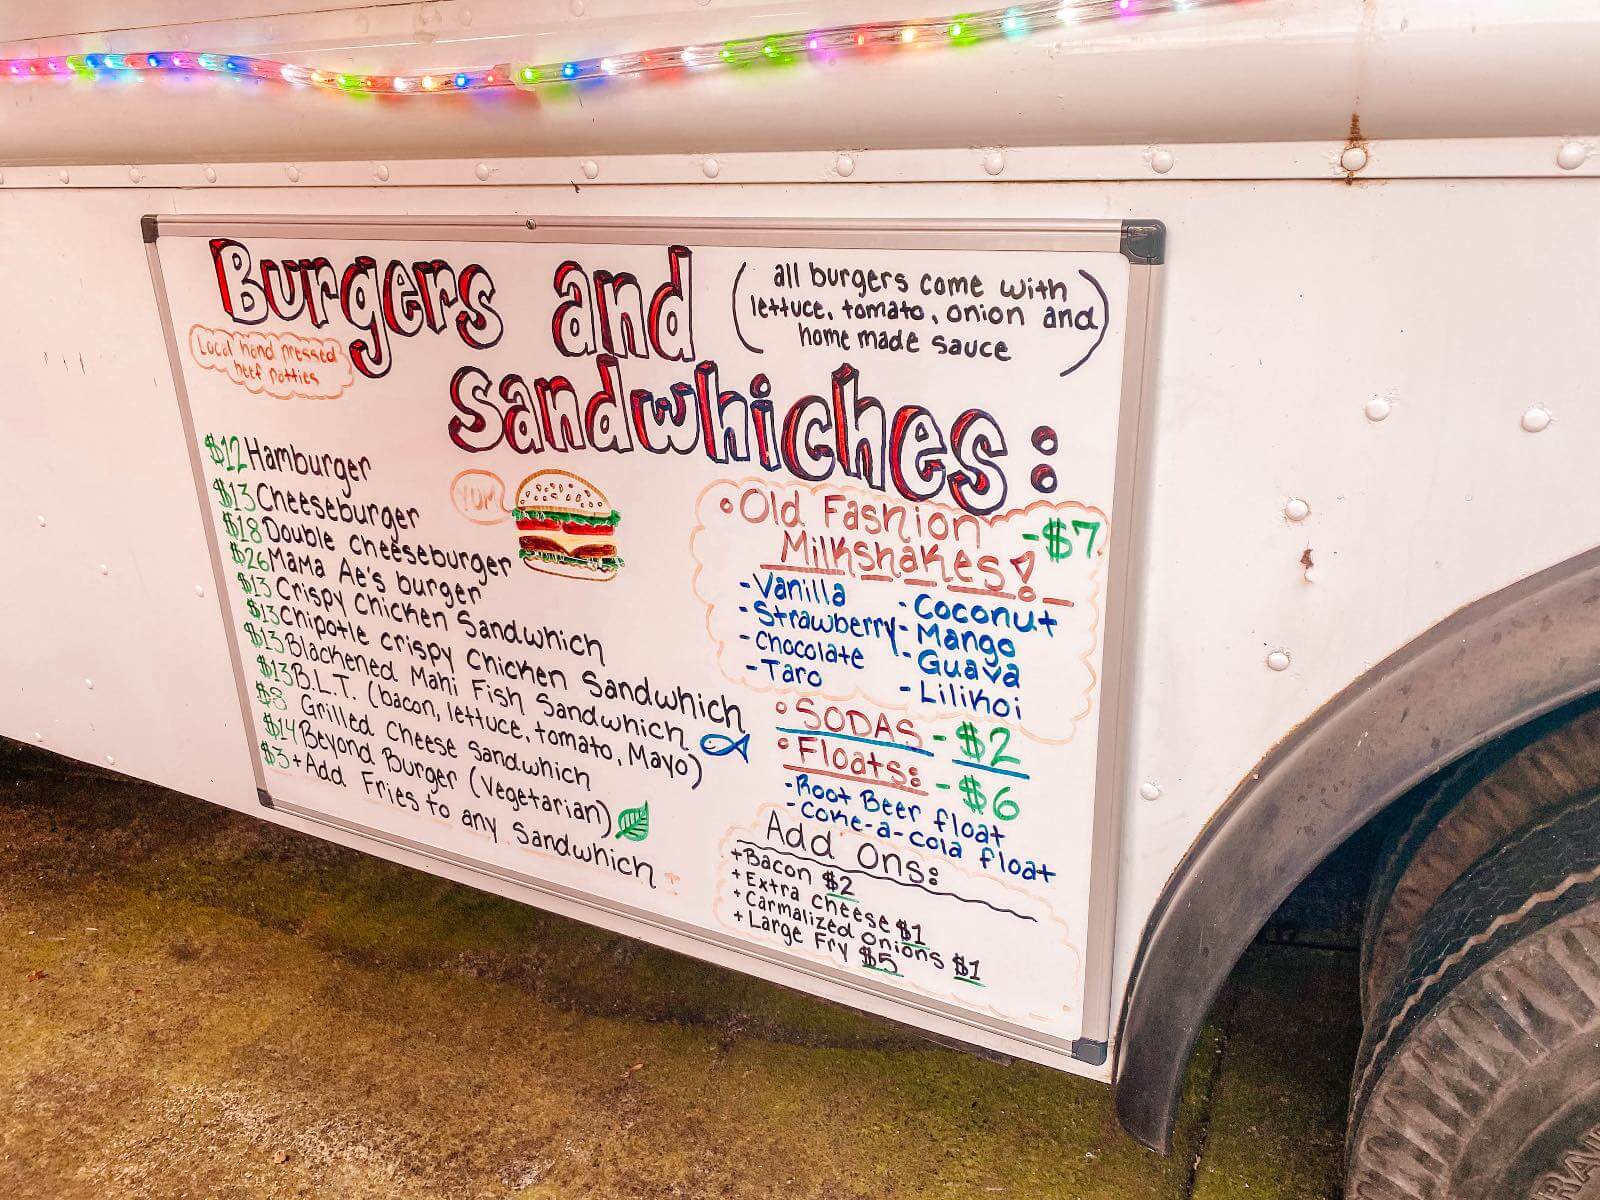 Burgers and
Sandwhiches:
(all burgers come with
lettuce, tomato, onion and
home made sauce)
Local hand pressed
beef patties
$12 Hamburger
$13 Cheeseburger
$18 Double cheeseburger
$26 Mama Ae's burger
$13 Crispy Chicken Sandwhich
$13 Chipotle crispy Chicken Sandwhich
$13 Blackened Mahi Fish Sandwhich
$13 B.L.T. (bacon, lettuce, tomato, Mayo)
$8 Grilled Cheese Sandwhich
$14 Beyond Burger (Vegetarian)
$3 + Add Fries to any Sandwhich
YUM
Old Fashion - $7
Milkshakes!
- Vanilla - Coconut
- Strawberry - Mango
- Chocolate - Guava
- Taro - Lilikoi
SODAS - $2
Floats: - $6
- Root Beer float
- Coke-a-cola float
Add Ons:
+ Bacon $2
+ Extra cheese $1
+ Carmalized Onions $1
+ Large Fry $5